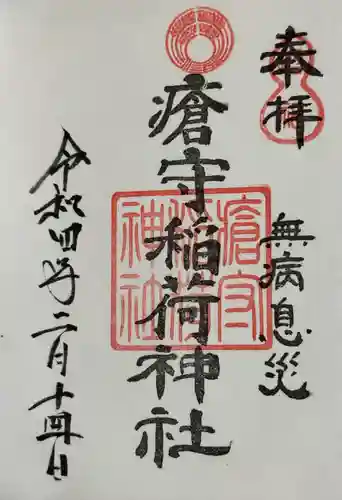 奉拝
無病息災
瘡守稲荷神社
瘡守
稲荷
神社
令和四年二月十四日